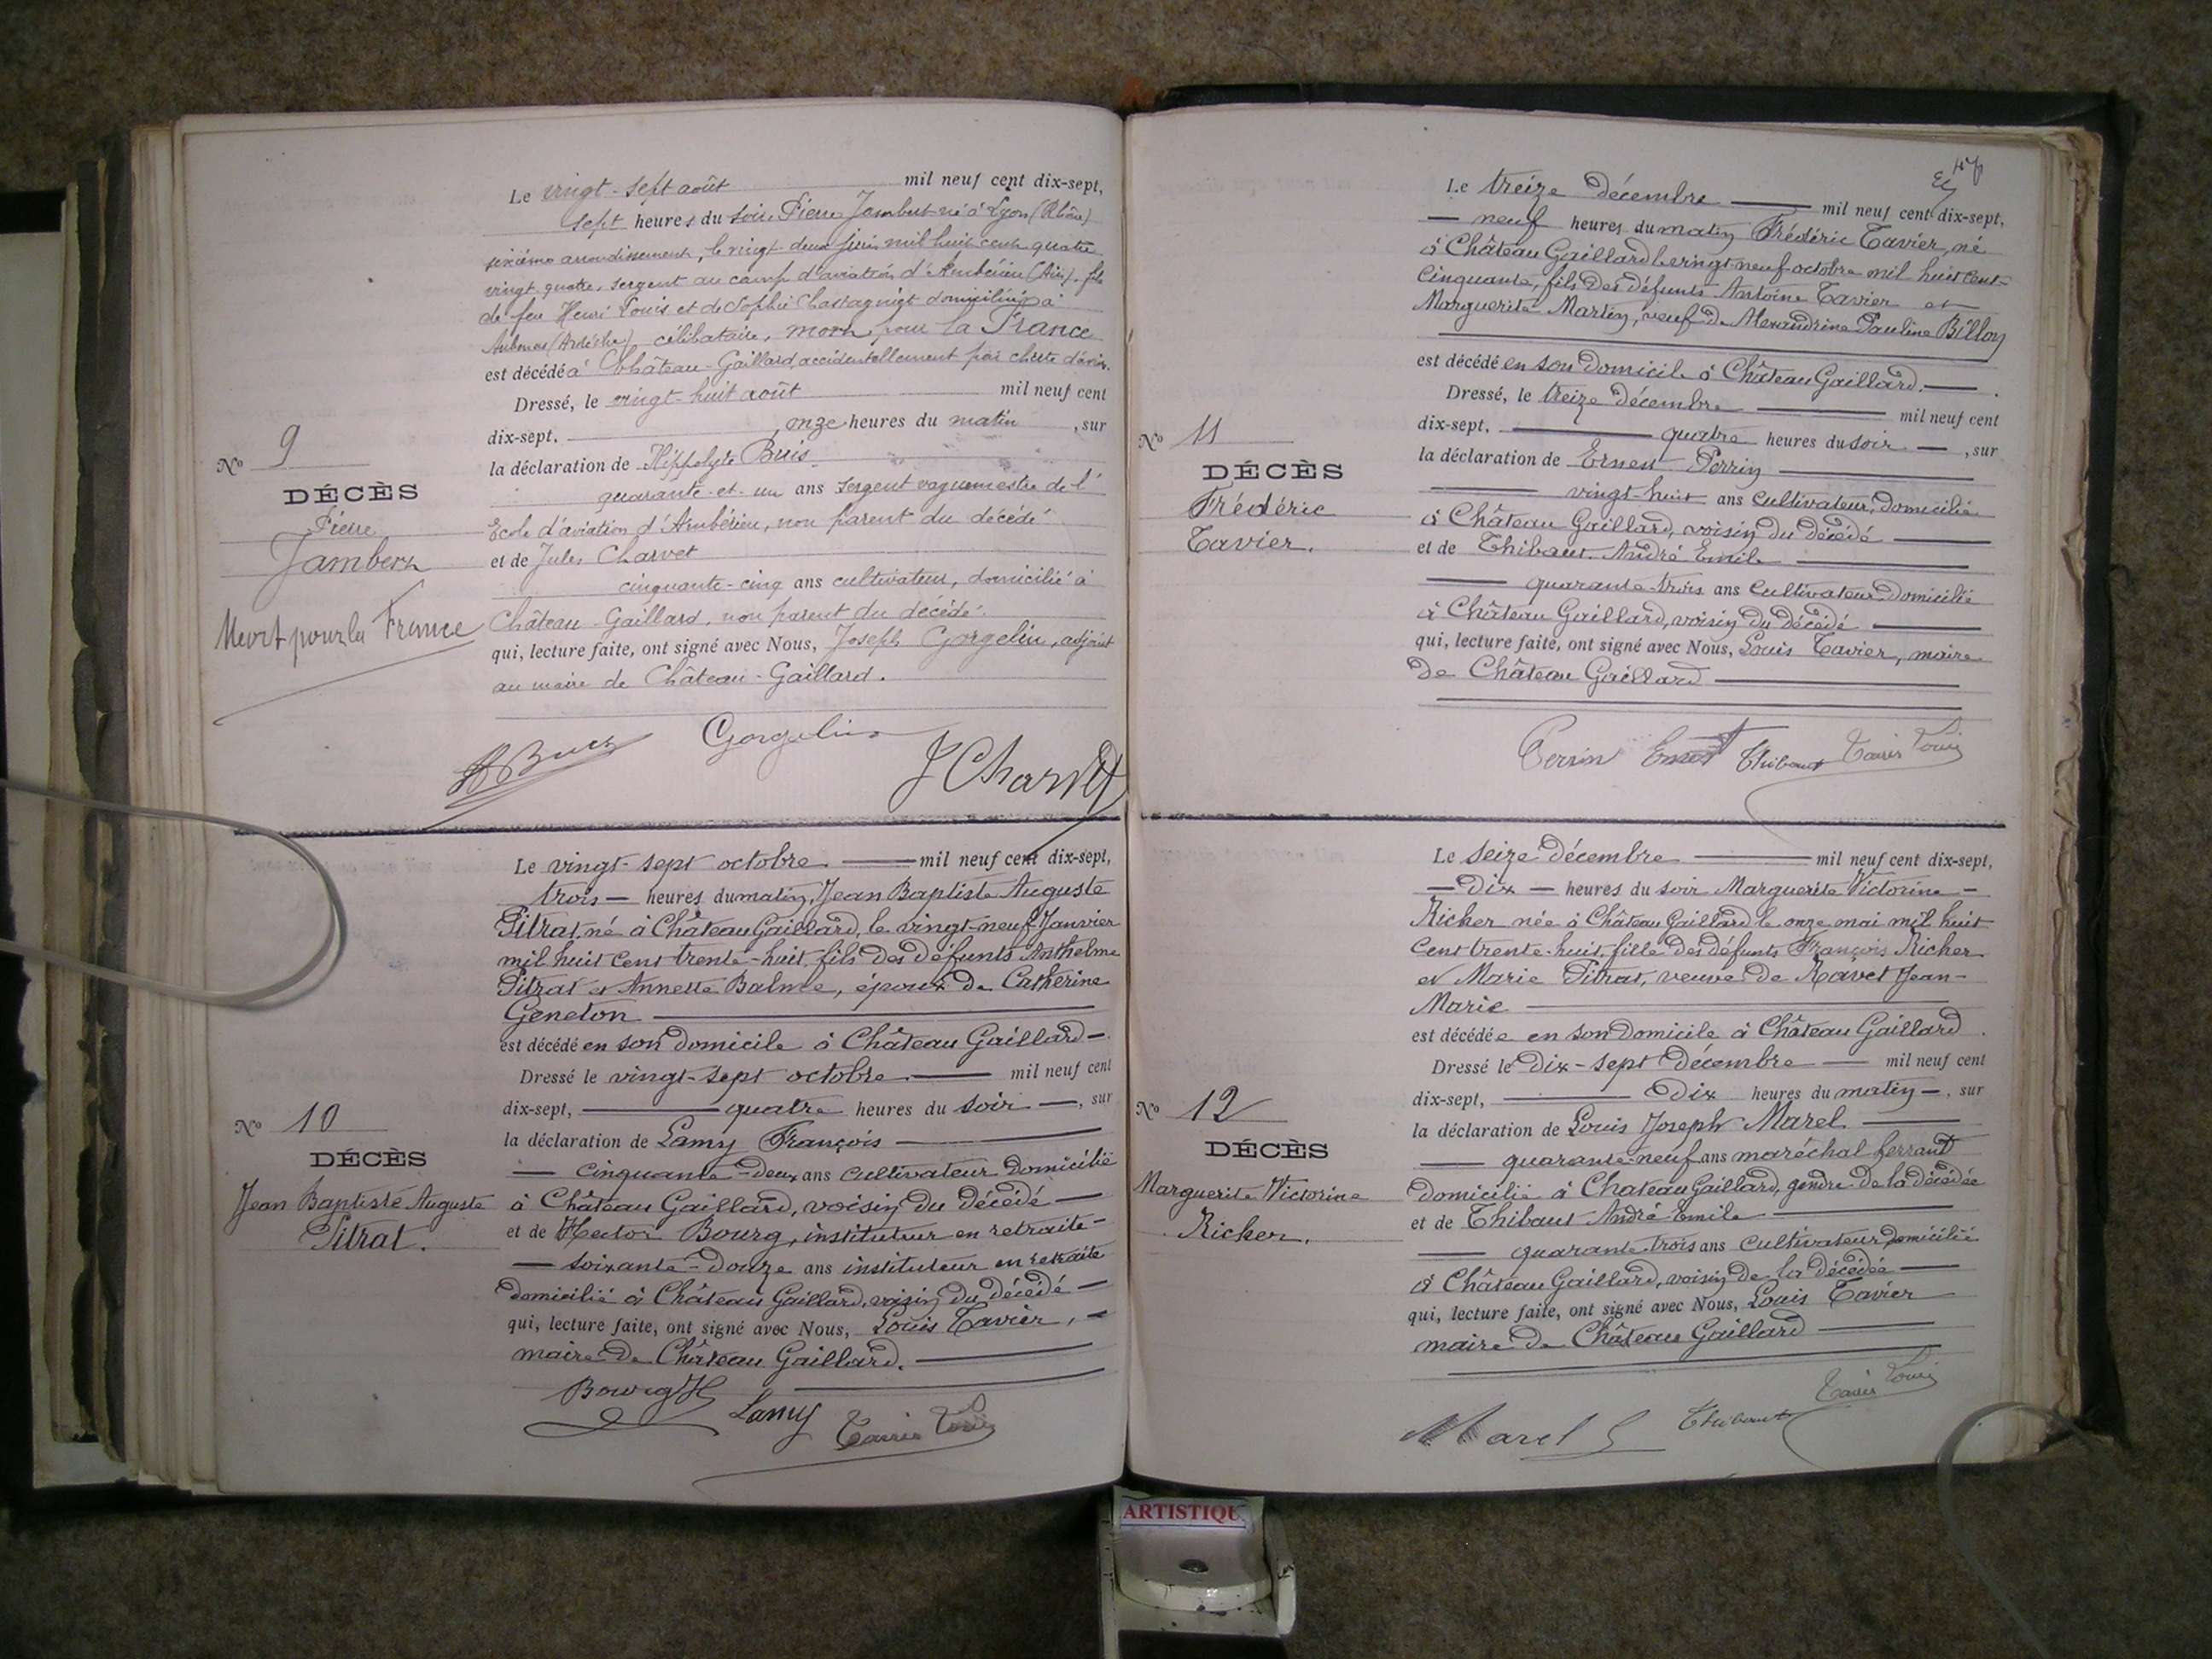 Le vingt-sept août mil neuf cent dix-sept,
sept heures du soir, Pierre Jambert né à Lyon (Rhône)
sixième arrondissement, le vingt-deux juin mil huit cent quatre
vingt quatre, sergent au camp d'aviation d'Ambérieu (Ain), fils
de feu Henri Louis et de Sophie domiciliée à
Aubenas (Ardèche) célibataire, mort pour la France
est décédé à Château-Gaillard accidentellement par chute d'avion.
Dressé, le vingt-huit août mil neuf cent
dix-sept, onze heures du matin, sur
la déclaration de Hippolyte Buis
quarante-et-un ans sergent vaguemestre de l'
Ecole d'aviation d'Ambérieu, non parent du décédé
et de Jules Charvet
cinquante-cinq ans cultivateur, domicilié à
Château-Gaillard, non parent du décédé.
qui, lecture faite, ont signé avec Nous, Joseph Gorgelin, adjoint
au maire de Château-Gaillard.
N° 9
DÉCÈS
Pierre
Jambert
Mort pour la France
Gorgelin
J Charvet
Le vingt-sept octobre mil neuf cent dix-sept,
trois heures du matin, Jean Baptiste Auguste
Pitrat, né à Château Gaillard, le vingt-neuf Janvier
mil huit cent trente-huit, fils des défunts Anthelme
Pitrat et Annette Balme, époux de Catherine
Geneton
est décédé en son domicile à Château Gaillard
Dressé le vingt-sept octobre mil neuf cent
dix-sept, quatre heures du soir, sur
la déclaration de Lamy François
cinquante-deux ans cultivateur domicilié
à Château Gaillard, voisin du décédé
et de Hector Bourg, instituteur en retraite
soixante-douze ans instituteur en retraite
domicilié à Château Gaillard, voisin du décédé
qui, lecture faite, ont signé avec Nous, Louis Tavier,
maire de Château Gaillard.
N° 10
DÉCÈS
Jean Baptiste Auguste
Pitrat.
Bourg H
Lamy
Tavier Louis
Le treize décembre mil neuf cent dix-sept,
neuf heures du matin Frédéric Tavier, né
à Château Gaillard le vingt-neuf octobre mil huit cent
cinquante, fils des défunts Antoine Tavier et
Marguerite Martin, veuf de Alexandrine Pauline Billon
est décédé en son domicile à Château Gaillard.
Dressé, le treize décembre mil neuf cent
dix-sept, quatre heures du soir, sur
la déclaration de Ernest Perrin
vingt-huit ans cultivateur, domicilié
à Château Gaillard, voisin du décédé
et de Thibaut André Emile
quarante-trois ans cultivateur domicilié
à Château Gaillard, voisin du décédé
qui, lecture faite, ont signé avec Nous, Louis Tavier, maire
de Château Gaillard
N° 11
DÉCÈS
Frédéric
Tavier.
Perrin Ernest Thibaut Tavier Louis
Le seize décembre mil neuf cent dix-sept,
dix heures du soir Marguerite Victorine
Richer née à Château Gaillard le onze mai mil huit
cent trente-huit, fille des défunts François Richer
et Marie Pitrat, veuve de Ravet Jean-
Marie
est décédée en son domicile à Château Gaillard.
Dressé le dix-sept décembre mil neuf cent
dix-sept, dix heures du matin, sur
la déclaration de Louis Joseph Marel
quarante-neuf ans maréchal ferrant
domicilié à Chateau Gaillard, gendre de la décédée
et de Thibaut André Emile
quarante-trois ans cultivateur domicilié
à Château Gaillard, voisin de la décédée
qui, lecture faite, ont signé avec Nous, Louis Tavier
maire de Château Gaillard
N° 12
DÉCÈS
Marguerite Victorine
Richer.
Marel Thibaut Tavier Louis
ARTISTIQU